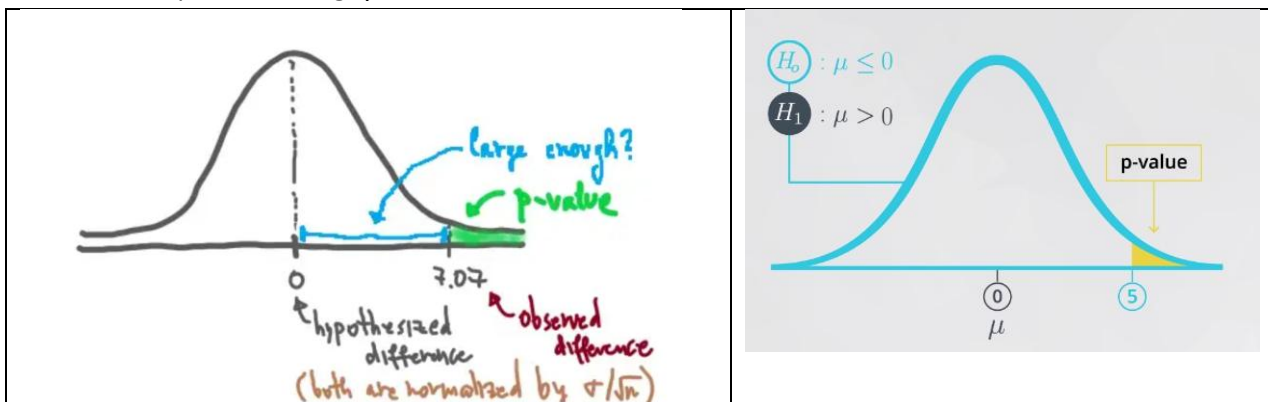 large enough?
p-value
0
7.07
hypothesized
difference
observed
difference
(both are normalized by σ/√n)
H₀ : μ ≤ 0
H₁ : μ > 0
p-value
0
5
μ